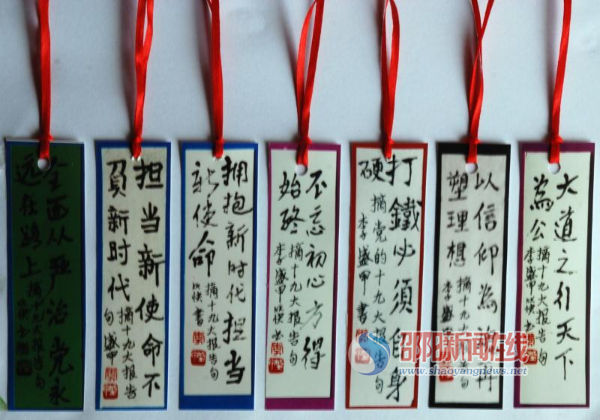 全面从严治党永
远在路上
摘十九大报告句
担当新使命不
負新时代
摘十九大报告
句盛甲
拥抱新时代担当
新使命
摘十九大报告句
書
不忘初心方得
始终
摘十九大报告句
李盛甲筱书
打鐵必须自身
硬
摘党的十九大报告句
李盛甲書
以信仰為
塑理想
摘十九大报告句
李盛甲
大道之行天下
為公
摘十九大报告句
李盛甲筱书
邵阳新闻在线
www.shaoyangnews.net